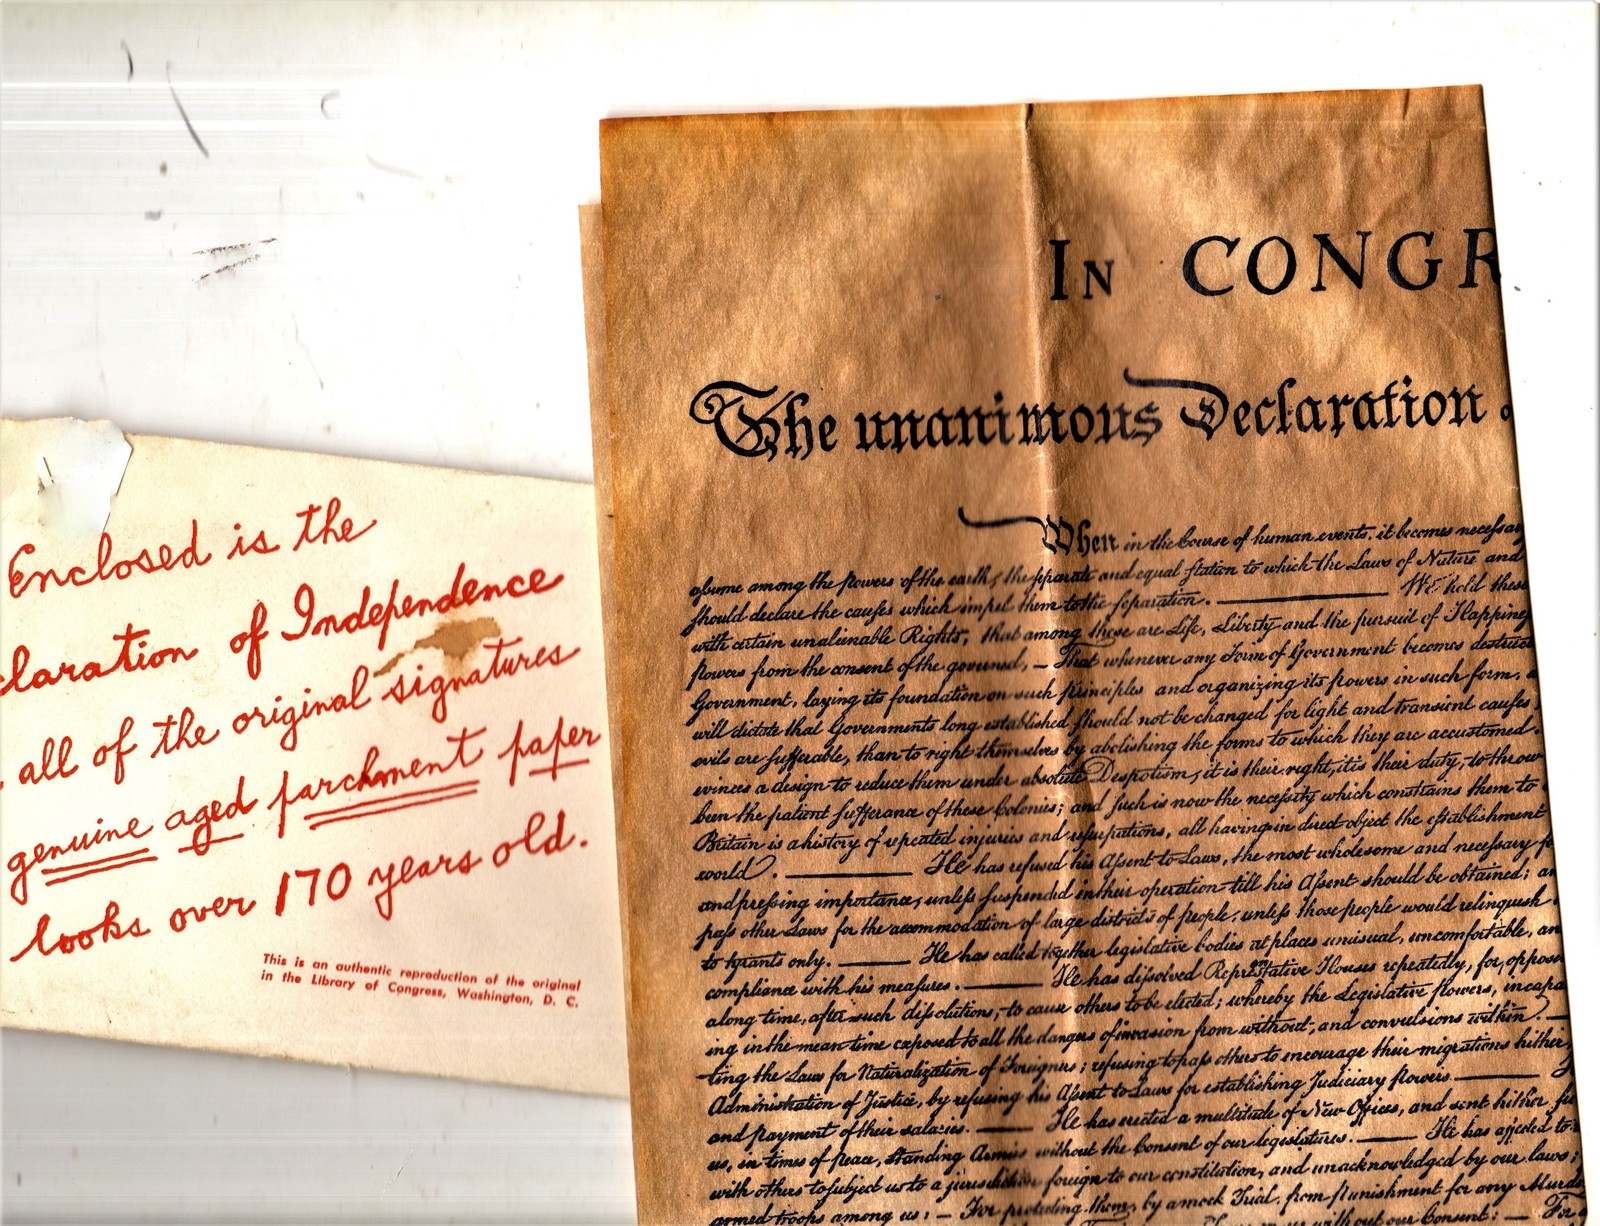 Enclosed is the
laration of Independence
all of the original signatures
genuine aged parchment paper
looks over 170 years old.
This is an authentic reproduction of the original
in the Library of Congress, Washington, D. C.
IN CONGR
The unanimous Declaration
When in the Course of human events, it becomes necessary
assume among the powers of the earth, the separate and equal station to which the Laws of Nature and
should declare the causes which impel them to the separation. We hold these
with certain unalienable Rights, that among these are Life, Liberty and the pursuit of Happine
powers from the consent of the governed, — That whenever any Form of Government becomes destruc
Government, laying its foundation on such principles and organizing its powers in such form,
will dictate that Governments long established should not be changed for light and transient causes;
evils are sufferable, than to right themselves by abolishing the forms to which they are accustomed.
evinces a design to reduce them under absolute Despotism, it is their right, it is their duty, to throw
been the patient sufferance of these Colonies; and such is now the necessity which constrains them to
Britain is a history of repeated injuries and usurpations, all having in direct object the establishment
world. He has refused his Assent to Laws, the most wholesome and necessary f
and pressing importance, unless suspended in their operation till his Assent should be obtained; an
pass other Laws for the accommodation of large districts of people, unless those people would relinquish
to tyrants only. He has called together legislative bodies at places unusual, uncomfortable, an
compliance with his measures. He has dissolved Representative Houses repeatedly, for oppos
along time, after such dissolutions, to cause others to be elected; whereby the Legislative powers, incapa
ing in the mean time exposed to all the dangers of invasion from without, and convulsions within.
ting the Laws for Naturalization of Foreigners; refusing to pass others to encourage their migrations hither,
Administration of Justice, by refusing his Assent to Laws for establishing Judiciary powers.
and payment of their salaries. He has erected a multitude of New Offices, and sent hither
us, in times of peace, Standing Armies without the Consent of our legislatures. He has affected to
with others to subject us to a jurisdiction foreign to our constitution, and unacknowledged by our laws;
armed troops among us: — For protecting them, by a mock Trial, from punishment for any Murd
without our Consent: — For